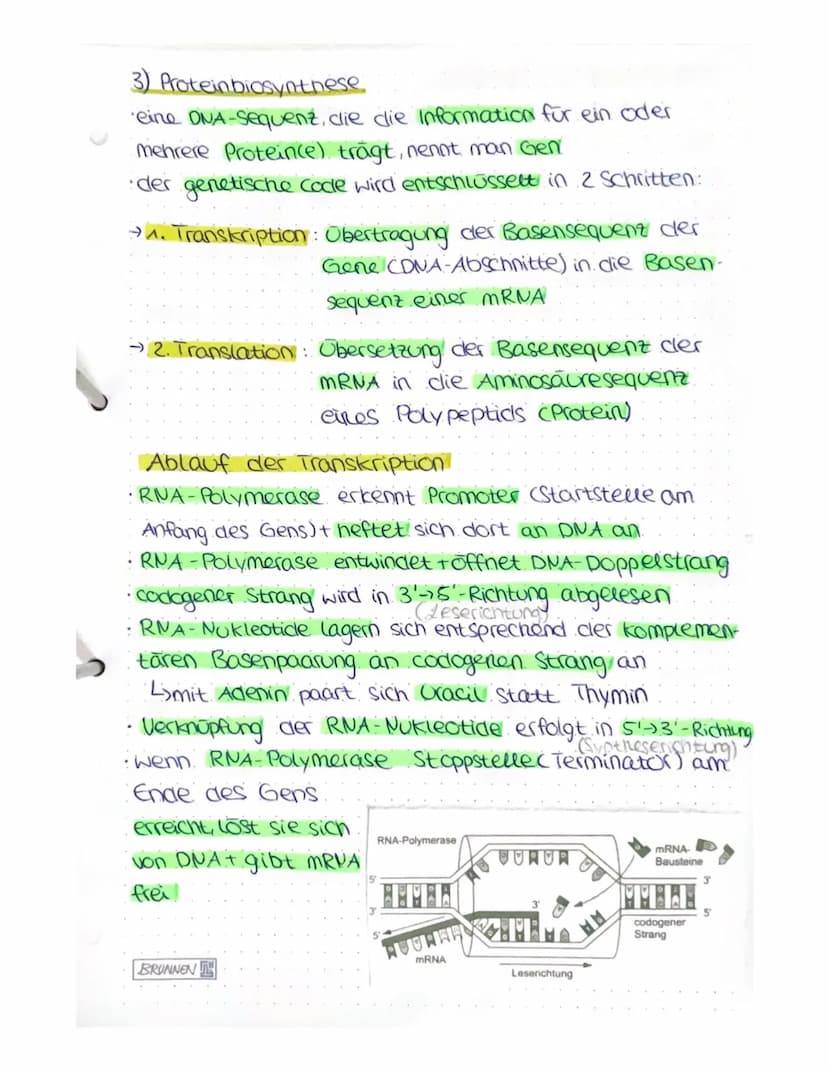 3) Proteinbiosynthese
· eine DNA-Sequenz, die die Information für ein oder
mehrere Protein(e) trägt, nennt man Gen
· der genetische Code wird entschlüsselt in 2 Schritten:
→ 1. Transkription: Übertragung der Basensequenz der
Gene (DNA-Abschnitte) in die Basen-
sequenz einer mRNA
→ 2. Translation: Übersetzung der Basensequenz der
mRNA in die Aminosäuresequenz
eines Polypeptids (Protein)
Ablauf der Transkription
· RNA-Polymerase erkennt Promoter (Startstelle am
Anfang des Gens) + heftet sich dort an DNA an
· RNA-Polymerase entwindet + öffnet DNA-Doppelstrang
· codogener Strang wird in 3'→5'-Richtung abgelesen
(Leserichtung)
· RNA-Nukleotide lagern sich entsprechend der komplemen-
tären Basenpaarung an codogenen Strang an
↳ mit Adenin paart sich Uracil statt Thymin
· Verknüpfung der RNA-Nukleotide erfolgt in 5'→3'-Richtung
(Syntheserichtung)
· wenn RNA-Polymerase Stoppstelle (Terminator) am
Ende des Gens
erreicht, löst sie sich
von DNA + gibt mRNA
frei
RNA-Polymerase
mRNA-
Bausteine
5'
3'
3'
3'
5'
5'
codogener
Strang
mRNA
Leserichtung
BRUNNEN